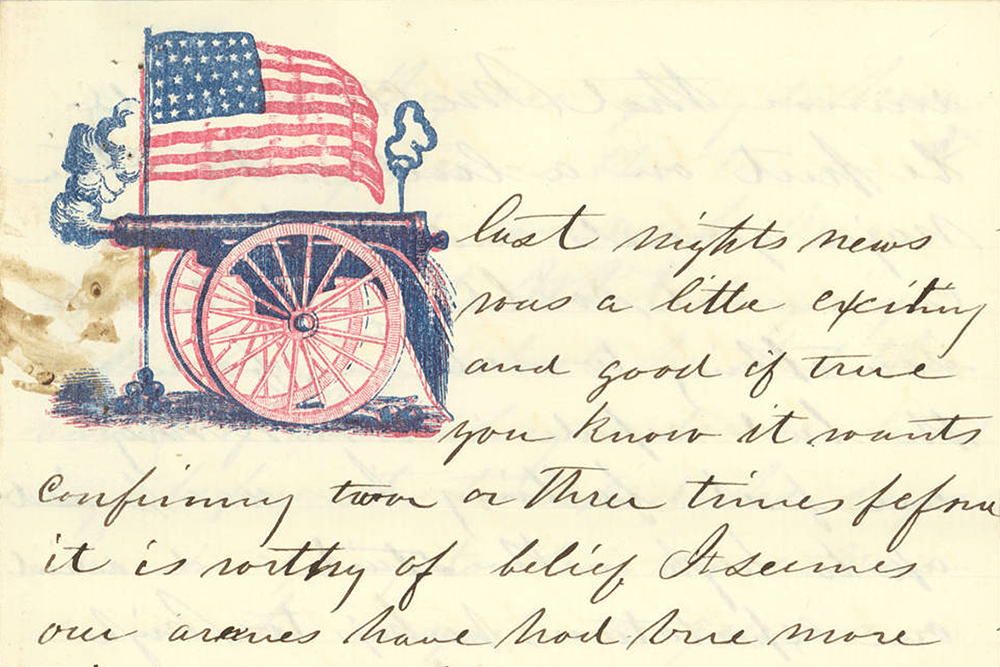 last nights news
was a little exciting
and good if true
you know it wants
confirming two or three times before
it is worthy of belief It seemes
our armes have had one more